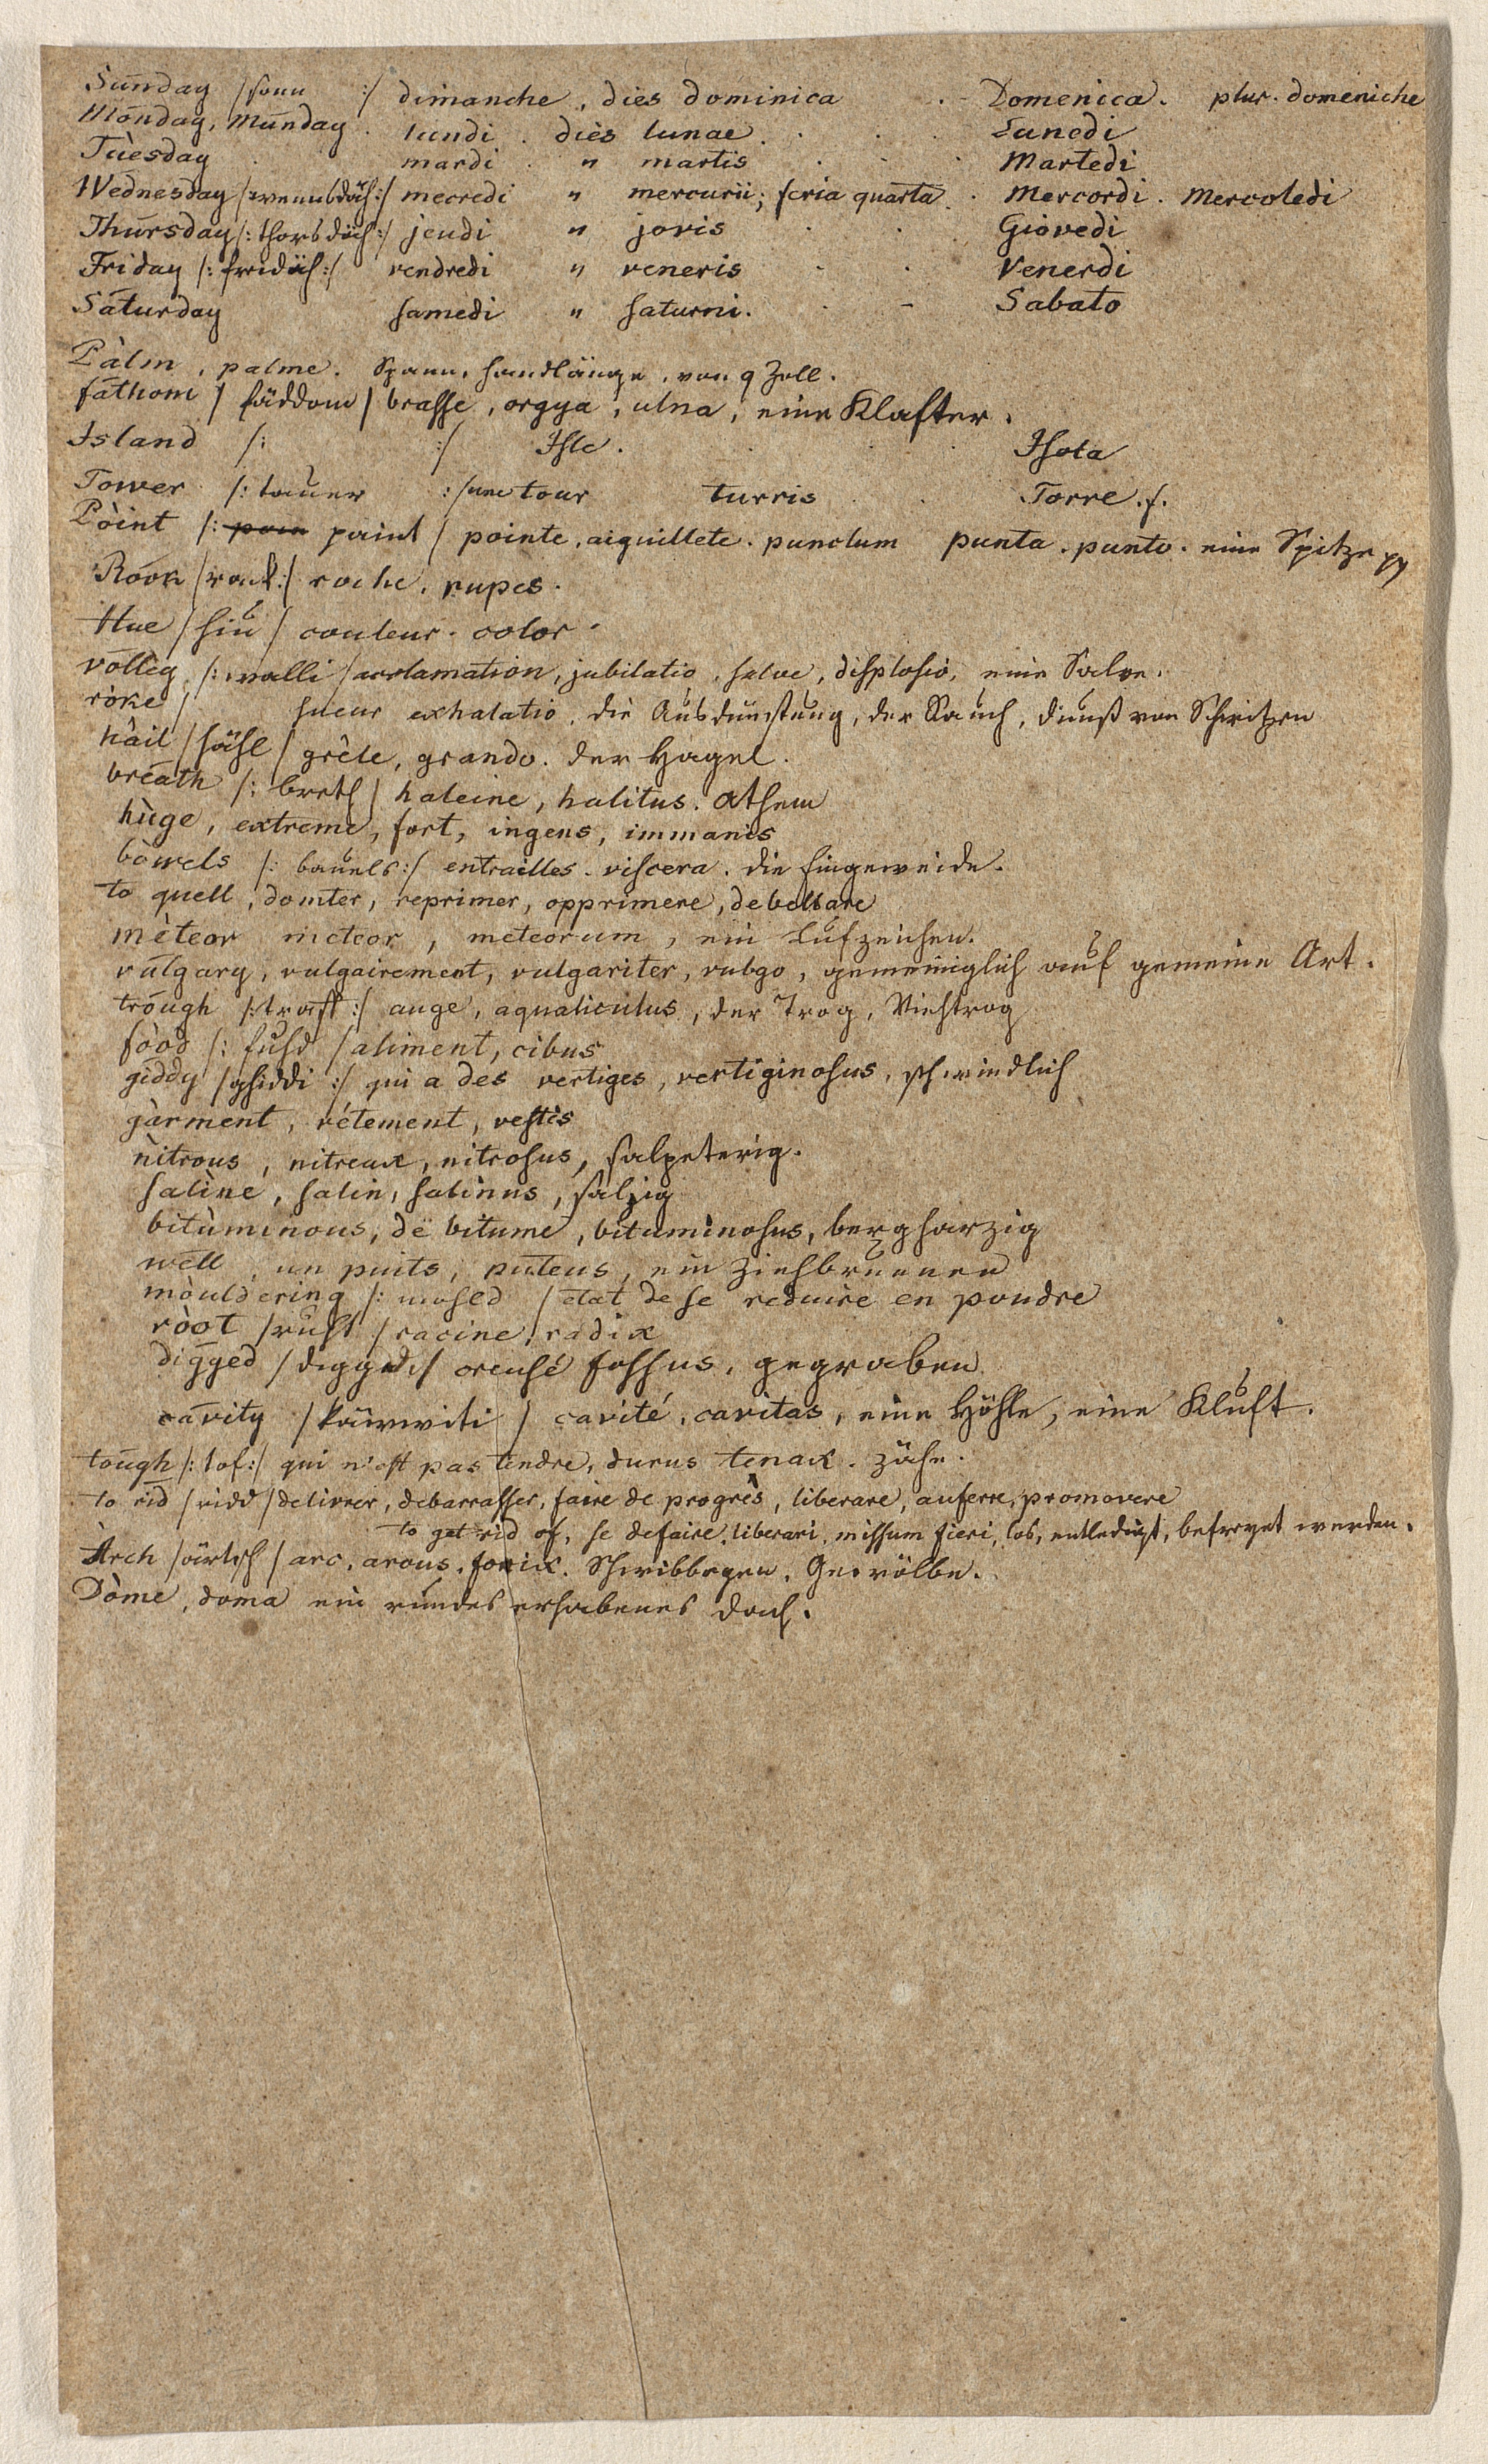 Sunday /sonn :/ dimanche, dies dominica . . Domenica. plur. domeniche
Monday, Munday . lundi . dies lunae . . . Lunedi
Tùesday . mardi . " martis . . . Martedi
Wednesday /:wennsdäh:/ mecredi " mercurii; feria quarta . Mercordi. Mercoledi
Thursday /:thorsdäh:/ jeudi " jovis . . Giovedi
Friday /:fridäh:/ vendredi " veneris . . Venerdi
Saturday samedi " saturni. . - Sabato
Pàlm, palme. Spann, handlänge, von 9 Zoll.
fathom / fäddom / brasse, orgya, ulna, eine Klafter.
Island /: :/ Isle. Isola
Tower /: tauer :/ une tour turris . . Torre. f.
Pòint /: poin paint / pointe, aiguillete. punctum punta. punto. eine Spitze
Rook /rack:/ roche. rupes.
Hue / hiu / couleur. color.
volley /: walli / acclamation, jubilatio, salve, displosio, eine Salve.
roke / sueur exhalatio, die Ausdünstung, der Rauch, Dunst von Schwitzen
hàil / hähl / grèle, grando. der Hagel.
breath /: breth / haleine, halitus. Athem
hùge, extreme, fort, ingens, immanis
bòwels /: bauels:/ entrailles. viscera. die Eingeweide.
to quell, domter, reprimer, opprimere, debellare
mèteor meteor, meteorum, ein Lufzeichen.
vulgary, vulgairement, vulgariter, vulgo, gemeiniglich auf gemeine Art.
trough /:traff:/ auge, aqualiculus, der Trog, Viehtrog
fòod /: fuhd / aliment, cibus
giddy /ghiddi :/ qui a des vertiges, vertiginosus, schwindlich
gàrment, vétement, vestis
nìtrous, nitreux, nitrosus, salpeterig.
salìne, salin, salinus, salzig
bitùminous, de bitume, bituminosus, bergharzig
well, un puits, puteus, ein Ziehbrunnen
mòuldering /: mohld / etat de se reduire en poudre
ròot /ruht / racine, radix
digged / digged:/ creusé fossus, gegraben
cavity / käwwiti / cavité, cavitas, eine Höhle, eine Kluft.
tough /: tof:/ qui n'est pas tendre, durus tenax. zähe.
to rid / ridd / delivrer, debarrasser, faire de progrès, liberare, auferre, promovere
to get rid of, se defaire, liberari, missum fieri, los, entledigt, befreyet werden.
Àrch / ärtsh / arc, arcus, fornix. Schwibbogen, Gewölbe.
Dòme, doma ein rundes erhabenes Dach.